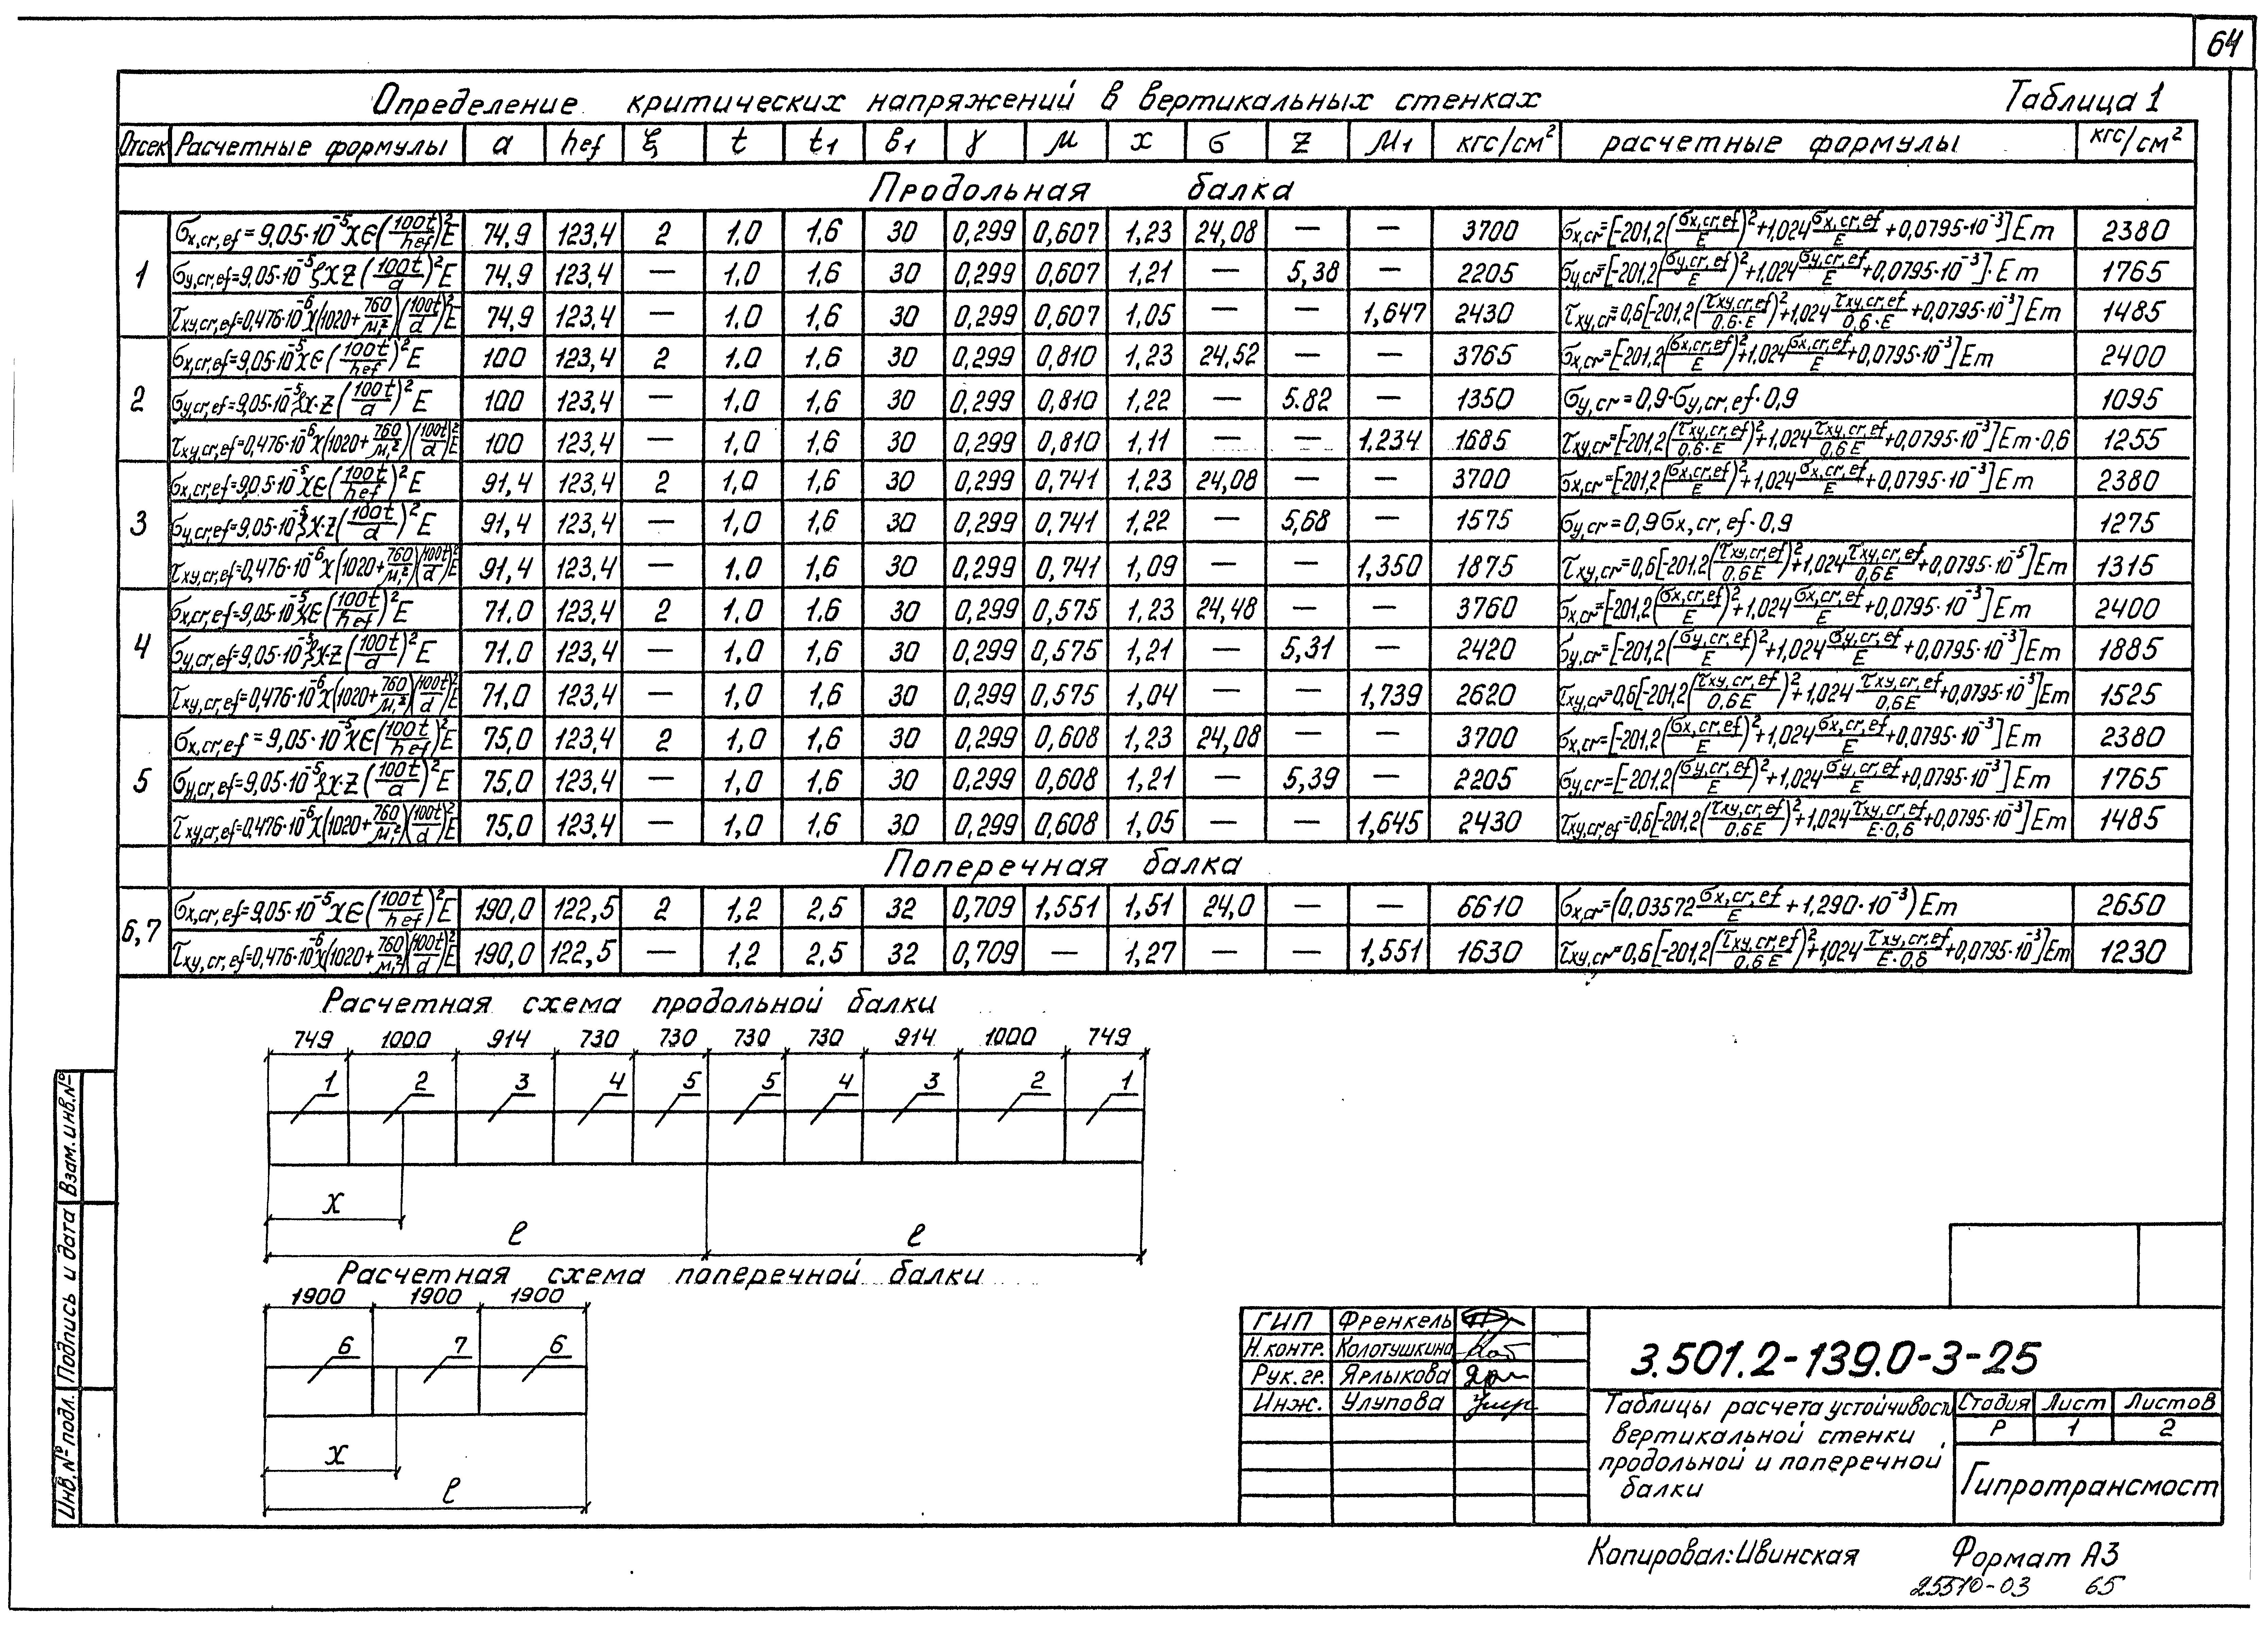 64
Определение критических напряжений в вертикальных стенках Таблица 1
Отсек Расчетные формулы a hef ξ t t1 в1 γ μ x σ z М1 кгс/см² расчетные формулы кгс/см²
Продольная балка
1
σx,cr,ef=9,05·10⁻⁵χϵ(100t/hef)²E 74,9 123,4 2 1,0 1,6 30 0,299 0,607 1,23 24,08 — — 3700 σx,cr=[-201,2(σx,cr,ef/E)²+1,024 σx,cr,ef/E+0,0795·10⁻³]Em 2380
σy,cr,ef=9,05·10⁻⁵ξχz(100t/a)²E 74,9 123,4 — 1,0 1,6 30 0,299 0,607 1,21 — 5,38 — 2205 σy,cr=[-201,2(σy,cr,ef/E)²+1,024 σy,cr,ef/E+0,0795·10⁻³]·Em 1765
τxy,cr,ef=0,476·10⁻⁶χ(1020+760/μ₁²)(100t/d)²E 74,9 123,4 — 1,0 1,6 30 0,299 0,607 1,05 — — 1,647 2430 τxy,cr=0,6[-201,2(τxy,cr,ef/0,6·E)²+1,024 τxy,cr,ef/0,6·E+0,0795·10⁻³]Em 1485
2
σx,cr,ef=9,05·10⁻⁵χϵ(100t/hef)²E 100 123,4 2 1,0 1,6 30 0,299 0,810 1,23 24,52 — — 3765 σx,cr=[-201,2(σx,cr,ef/E)²+1,024 σx,cr,ef/E+0,0795·10⁻³]Em 2400
σy,cr,ef=9,05·10⁻⁵ξχ·z(100t/a)²E 100 123,4 — 1,0 1,6 30 0,299 0,810 1,22 — 5.82 — 1350 σy,cr=0,9·σy,cr,ef·0,9 1095
τxy,cr,ef=0,476·10⁻⁶χ(1020+760/μ₁²)(100t/d)²E 100 123,4 — 1,0 1,6 30 0,299 0,810 1,11 — — 1.234 1685 τxy,cr=[-201,2(τxy,cr,ef/0,6·E)²+1,024 τxy,cr,ef/0,6E+0,0795·10⁻³]Em·0,6 1255
3
σx,cr,ef=9,05·10⁻⁵χϵ(100t/hef)²E 91,4 123,4 2 1,0 1,6 30 0,299 0,741 1,23 24,08 — — 3700 σx,cr=[-201,2(σx,cr,ef/E)²+1,024 σx,cr,ef/E+0,0795·10⁻³]Em 2380
σy,cr,ef=9,05·10⁻⁵ξχ·z(100t/a)²E 91,4 123,4 — 1,0 1,6 30 0,299 0,741 1,22 — 5,68 — 1575 σy,cr=0,9σx,cr,ef·0,9 1275
τxy,cr,ef=0,476·10⁻⁶χ(1020+760/μ₁²)(100t/d)²E 91,4 123,4 — 1,0 1,6 30 0,299 0,741 1,09 — — 1,350 1875 τxy,cr=0,6[-201,2(τxy,cr,ef/0,6E)²+1,024 τxy,cr,ef/0,6E+0,0795·10⁻⁵]Em 1315
4
σx,cr,ef=9,05·10⁻⁵χϵ(100t/hef)²E 71.0 123,4 2 1,0 1.6 30 0,299 0,575 1,23 24,48 — — 3760 σx,cr=[-201,2(σx,cr,ef/E)²+1,024 σx,cr,ef/E+0,0795·10⁻³]Em 2400
σy,cr,ef=9,05·10⁻⁵ξχ·z(100t/a)²E 71.0 123,4 — 1,0 1,6 30 0,299 0,575 1,21 — 5,31 — 2420 σy,cr=[-201,2(σy,cr,ef/E)²+1,024 σy,cr,ef/E+0,0795·10⁻³]Em 1885
τxy,cr,ef=0,476·10⁻⁶χ(1020+760/μ₁²)(100t/d)²E 71,0 123,4 — 1,0 1,6 30 0,299 0,575 1,04 — — 1,739 2620 τxy,cr=0,6[-201,2(τxy,cr,ef/0,6E)²+1,024 τxy,cr,ef/0,6E+0,0795·10⁻³]Em 1525
5
σx,cr,ef=9,05·10⁻⁵χϵ(100t/hef)²E 75,0 123,4 2 1,0 1,6 30 0,299 0,608 1,23 24,08 — — 3700 σx,cr=[-201,2(σx,cr,ef/E)²+1,024 σx,cr,ef/E+0,0795·10⁻³]Em 2380
σy,cr,ef=9,05·10⁻⁵ξχ·z(100t/a)²E 75,0 123,4 — 1,0 1,6 30 0,299 0,608 1,21 — 5,39 — 2205 σy,cr=[-201,2(σy,cr,ef/E)²+1,024 σy,cr,ef/E+0,0795·10⁻³]Em 1765
τxy,cr,ef=0,476·10⁻⁶χ(1020+760/μ₁²)(100t/d)²E 75,0 123,4 — 1,0 1,6 30 0,299 0,608 1,05 — — 1,645 2430 τxy,cr,ef=0,6[-201,2(τxy,cr,ef/0,6E)²+1,024 τxy,cr,ef/E·0,6+0,0795·10⁻³]Em 1485
Поперечная балка
6,7
σx,cr,ef=9,05·10⁻⁵χϵ(100t/hef)²E 190,0 122,5 2 1,2 2,5 32 0,709 1,551 1,51 24,0 — — 6610 σx,cr=(0,03572 σx,cr,ef/E+1,290·10⁻³)Em 2650
τxy,cr,ef=0,476·10⁻⁶χ(1020+760/μ₁²)(100t/d)²E 190,0 122,5 — 1,2 2,5 32 0,709 — 1,27 — — 1,551 1630 τxy,cr=0,6[-201,2(τxy,cr,ef/0,6E)²+1,024 τxy,cr,ef/E·0,6+0,0795·10⁻³]Em 1230
Расчетная схема продольной балки
749 1000 914 730 730 730 730 914 1000 749
1 2 3 4 5 5 4 3 2 1
x
ℓ ℓ
Расчетная схема поперечной балки
1900 1900 1900
6 7 6
x
ℓ
Инв.№ подл. Подпись и дата Взам.инв.№
ГИП Френкель
Н.контр. Колотушкина
Рук.гр. Ярлыкова
Инж. Улупова
3.501.2-139.0-3-25
Таблицы расчета устойчивости
вертикальной стенки
продольной и поперечной
балки
Стадия Лист Листов
Р 1 2
Гипротрансмост
Копировал: Ивинская Формат А3
25510-03 65